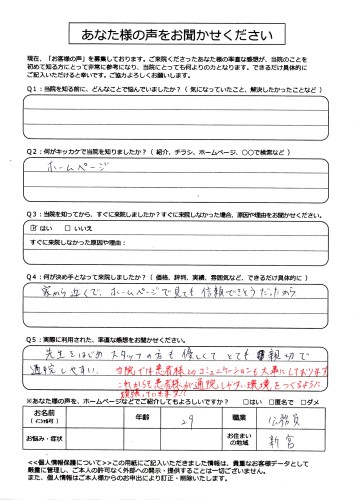 あなた様の声をお聞かせください
現在、「お客様の声」を募集しております。ご来院くださったあなた様の率直な感想が、当院のことを
初めて知る方にとって非常に参考になり、当院にとっても何よりの力となります。できるだけ具体的に
ご記入いただけると幸いです。ご協力よろしくお願いします。
Q1：当院を知る前に、どんなことで悩んでいましたか？（気になっていたこと、解決したかったことなど）
Q2：何がキッカケで当院を知りましたか？（紹介、チラシ、ホームページ、〇〇で検索など）
ホームページ
Q3：当院を知ってから、すぐに来院しましたか？すぐに来院しなかった場合、原因や理由をお聞かせください。
☑はい　□いいえ
すぐに来院しなかった原因や理由：
Q4：何が決め手となって来院しましたか？（価格、評判、実績、雰囲気など、できるだけ具体的に）
家から近くで、ホームページで見ても信頼できそうだったから
Q5：実際に利用された、率直な感想をお聞かせください。
先生をはじめスタッフの方も優しくてとても親切で
通院しやすい。当院では患者様とのコミュニケーションも大事にしております
これからも患者様が通院しやすい環境をつくるように
頑張っていきます!!
※あなた様の声を、ホームページなどでご紹介してもよろしいですか？　→　□はい　□匿名で　□ダメ
お名前
（イニシャル可）
年齢
29
職業
公務員
お悩み・症状
お住まい
の地域
新宮
<<個人情報保護について>>この用紙にご記入いただきました情報は、貴重なお客様データとして
厳重に管理し、ご本人の許可なく外部への開示・提供することは一切ございません。
また、個人情報はご本人様からのお申出により訂正・削除いたします。